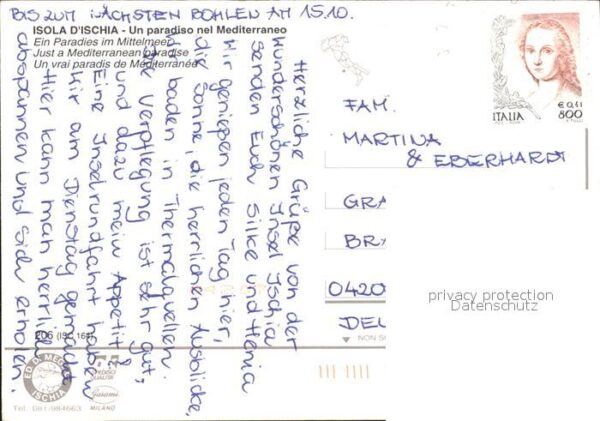 BIS ZUM NÄCHSTEN BOHLEN AM 15.10.
ISOLA D'ISCHIA - Un paradiso nel Mediterraneo
Ein Paradies im Mittelmeer
Just a Mediterranean paradise
Un vrai paradis de Méditerranée
Herzliche Grüße von der
wunderschönen Insel Ischia
senden Euch Silke und Henia
Wir genießen jeden Tag hier,
die Sonne, die herrlichen Ausblicke,
baden in Thermalquellen.
Die Verpflegung ist sehr gut,
und dazu mein Appetit?
Eine Inselrundfahrt haben
wir am Dienstag gemacht
Hier kann man herrlich
abspannen und sich erholen.
ITALIA
€ 0,41
800
FAM.
MARTINA
& EBERHARDT
GRA
BRA
0420
DEU
privacy protection
Datenschutz
206 (ISC 164)
NON S
ED. D. MEG
ISCHIA
Tel. 081/984663
Garami
MILANO